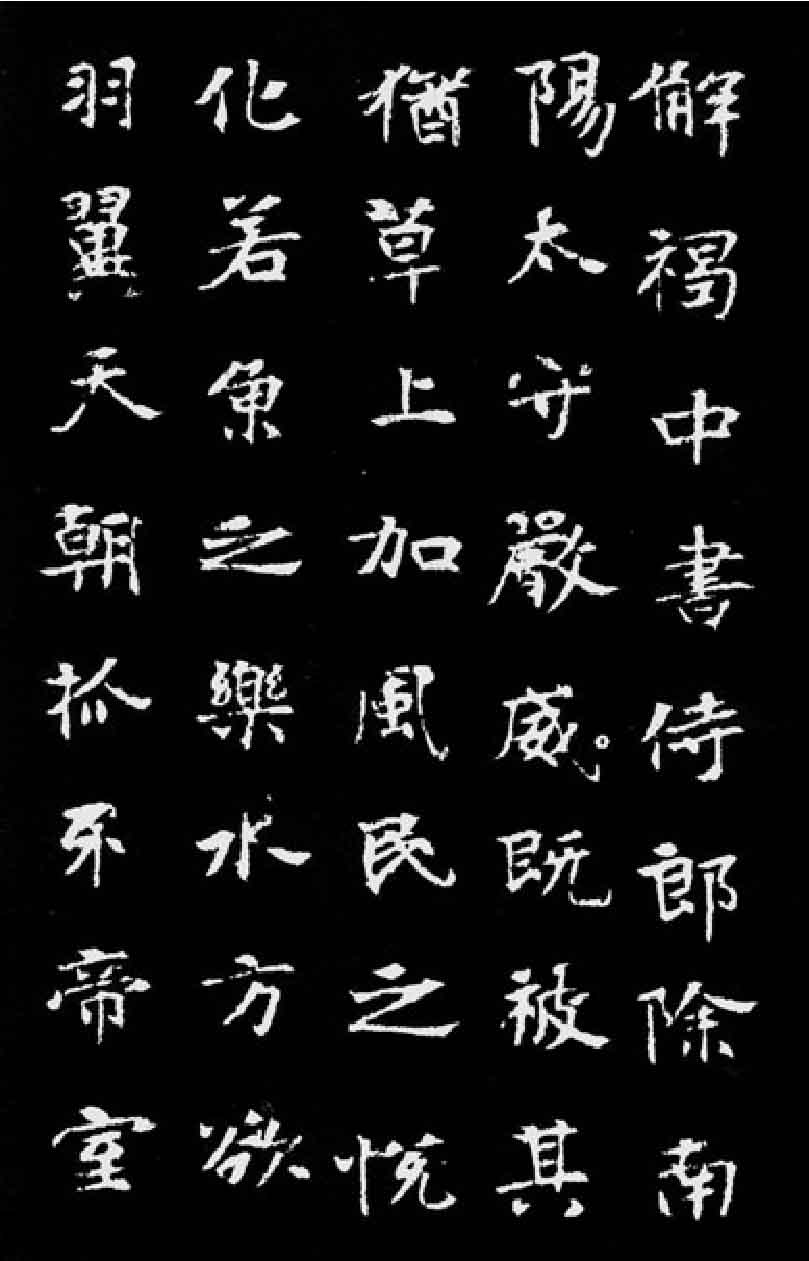 解褐中書侍郎除南
陽太守嚴威既被其
猶草上加風民之悅
化若魚之樂水方欲
羽翼天朝抓牙帝室